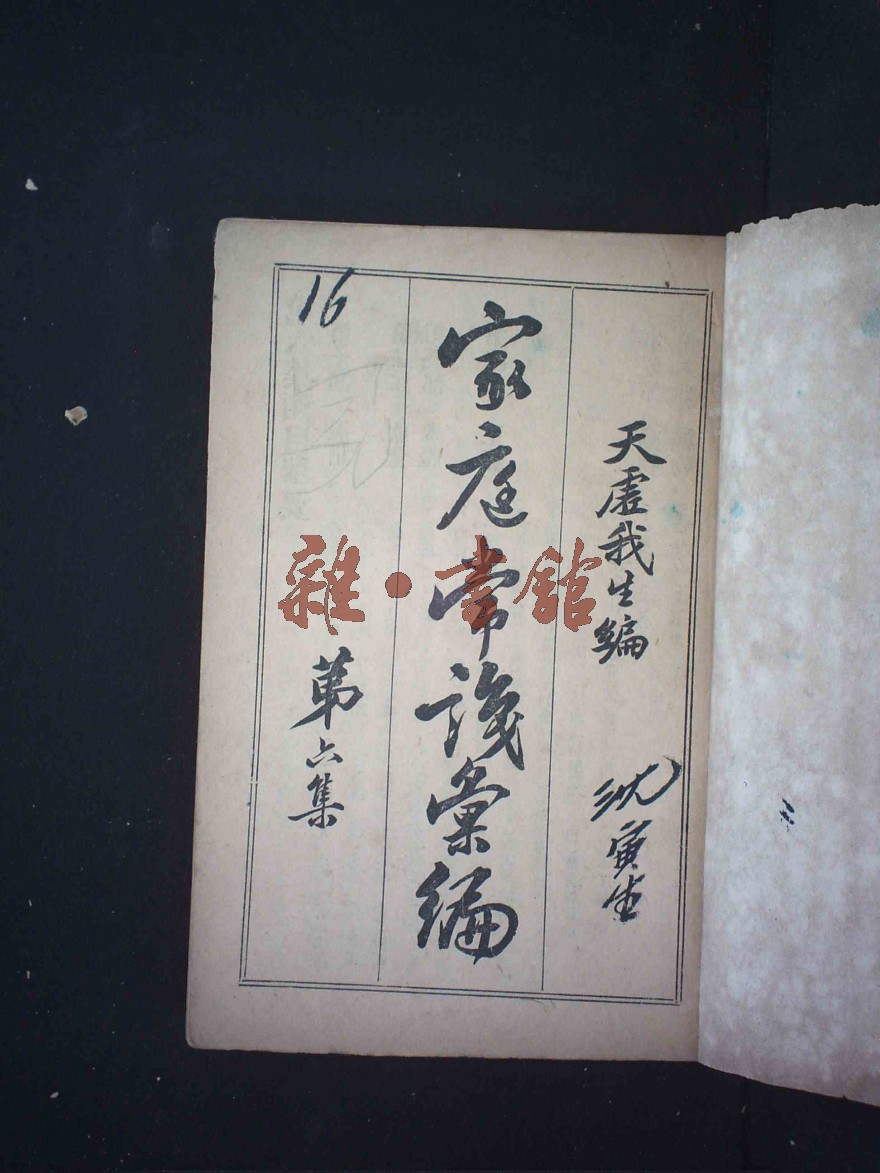 天虚我生編
沈寅生
家庭常識彙編
第六集
16
雜·書館